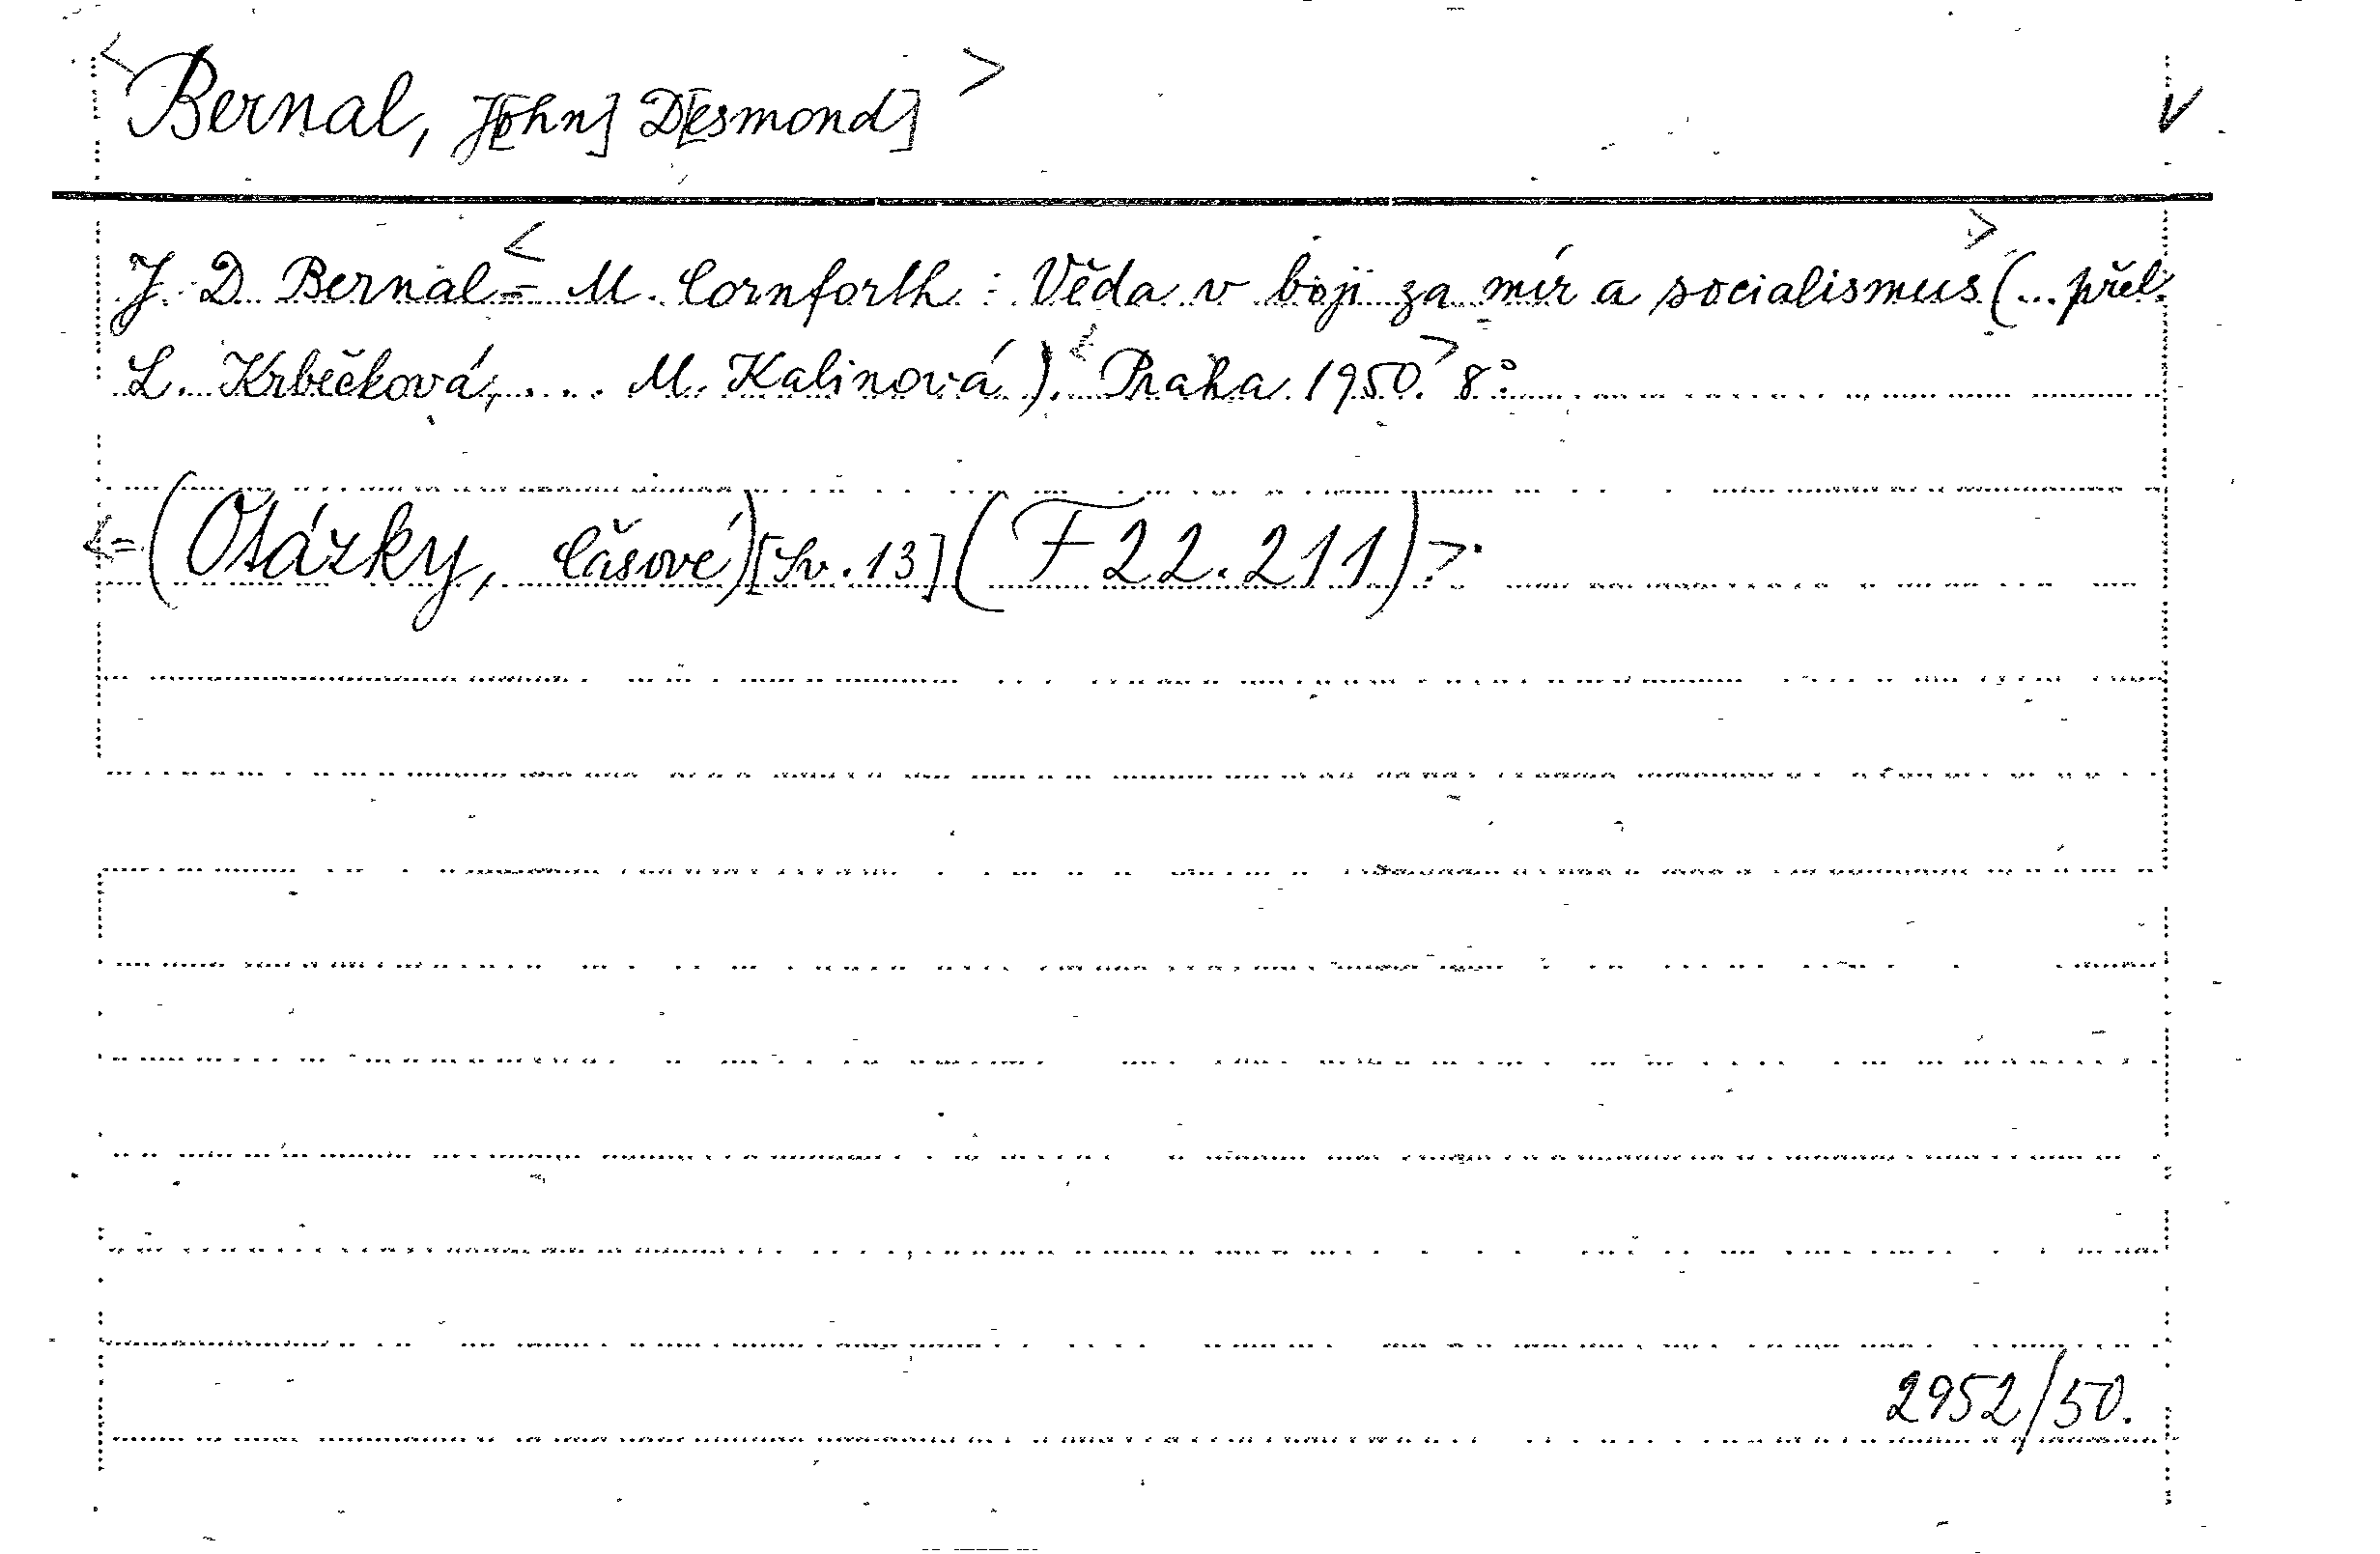 <Bernal, J[ohn] D[esmond]> V
J. D. Bernal <= M. Cornforth: Věda v boji za mír a socialismus> (... přel.
L. Krbečková, ... M. Kalinová). <Praha 1950.> 8°.
<= (Otázky, časové) [Sv. 13] (F 22.211)>.
2952/50.